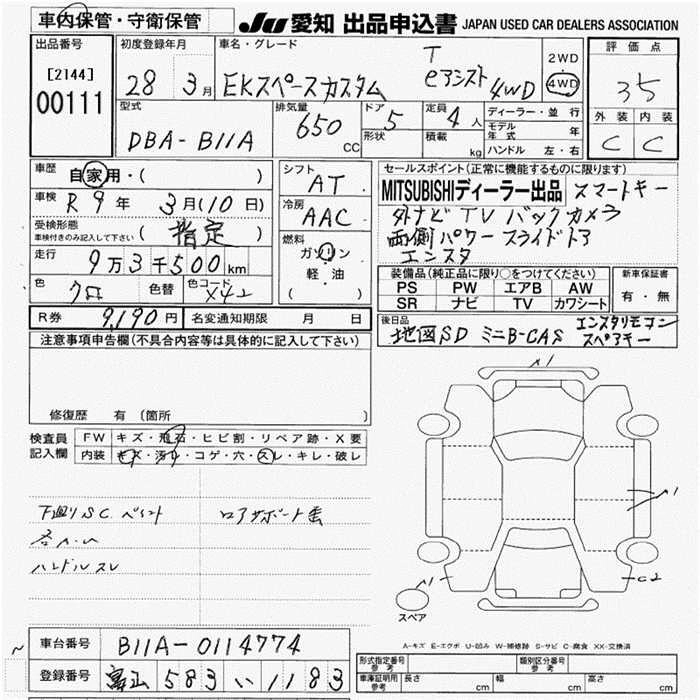 車内保管・守衛保管
JU 愛知 出品申込書 JAPAN USED CAR DEALERS ASSOCIATION
出品番号
[2144]
00111
初度登録年月
28 3月
車名・グレード
T
EKスペースカスタム eアシスト 4WD
2WD
4WD
評価点
35
外装 内装
C C
型式
DBA-B11A
排気量
650 CC
ドア 5
形状
定員 4人
積載 kg
ディーラー・並行
モデル年式 年
ハンドル 左・右
車歴 自家用・( )
車検 R9年 3月(10日)
受検形態
車検付きのみ記入して下さい ( 指定 )
走行 9万3千500km
色 クロ 色替 色コード X42
シフト AT
冷房 AAC
燃料 ガソリン
軽油
( )
セールスポイント(正常に機能するものに限ります)
MITSUBISHIディーラー出品 スマートキー
外ナビTV バックカメラ
両側パワースライドドア
エンスタ
装備品(純正品に限り○をつけてください)
PS PW エアB AW
SR ナビ TV カワシート
新車保証書
有・無
R券 9,190円 名変通知期限 月 日
後日品 地図SD ミニB-CAS エンスタリモコン
スペアキー
注意事項申告欄(不具合内容等は具体的に記入して下さい)
修復歴 有(箇所 )
検査員記入欄
FW キズ・飛石・ヒビ割・リペア跡・X要
内装 キズ・汚れ・コゲ・穴・スレ・キレ・破レ
下廻りSC ペイント
ハンドルスレ
ロアサポート
スペア
A-キズ E-エクボ U-凹み W-補修跡 S-サビ C-腐食 XX-交換済
車台番号 B11A-0114774
登録番号 富山 583 い 1183
形式指定番号 参考
類別区分番号 参考
車庫証明用 参考 長さ cm 幅 cm 高さ cm